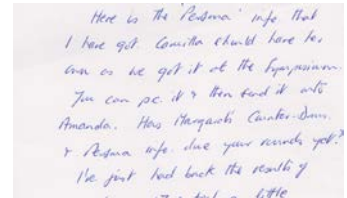 Here is the 'Persona' info that
I have got. Camilla should have her
own as we got it at the Symposium.
You can pc. it & then send it onto
Amanda. Has Margaret's Counter-Dims.
& Persona info. done your rounds yet?
I've just had back the results of
a little